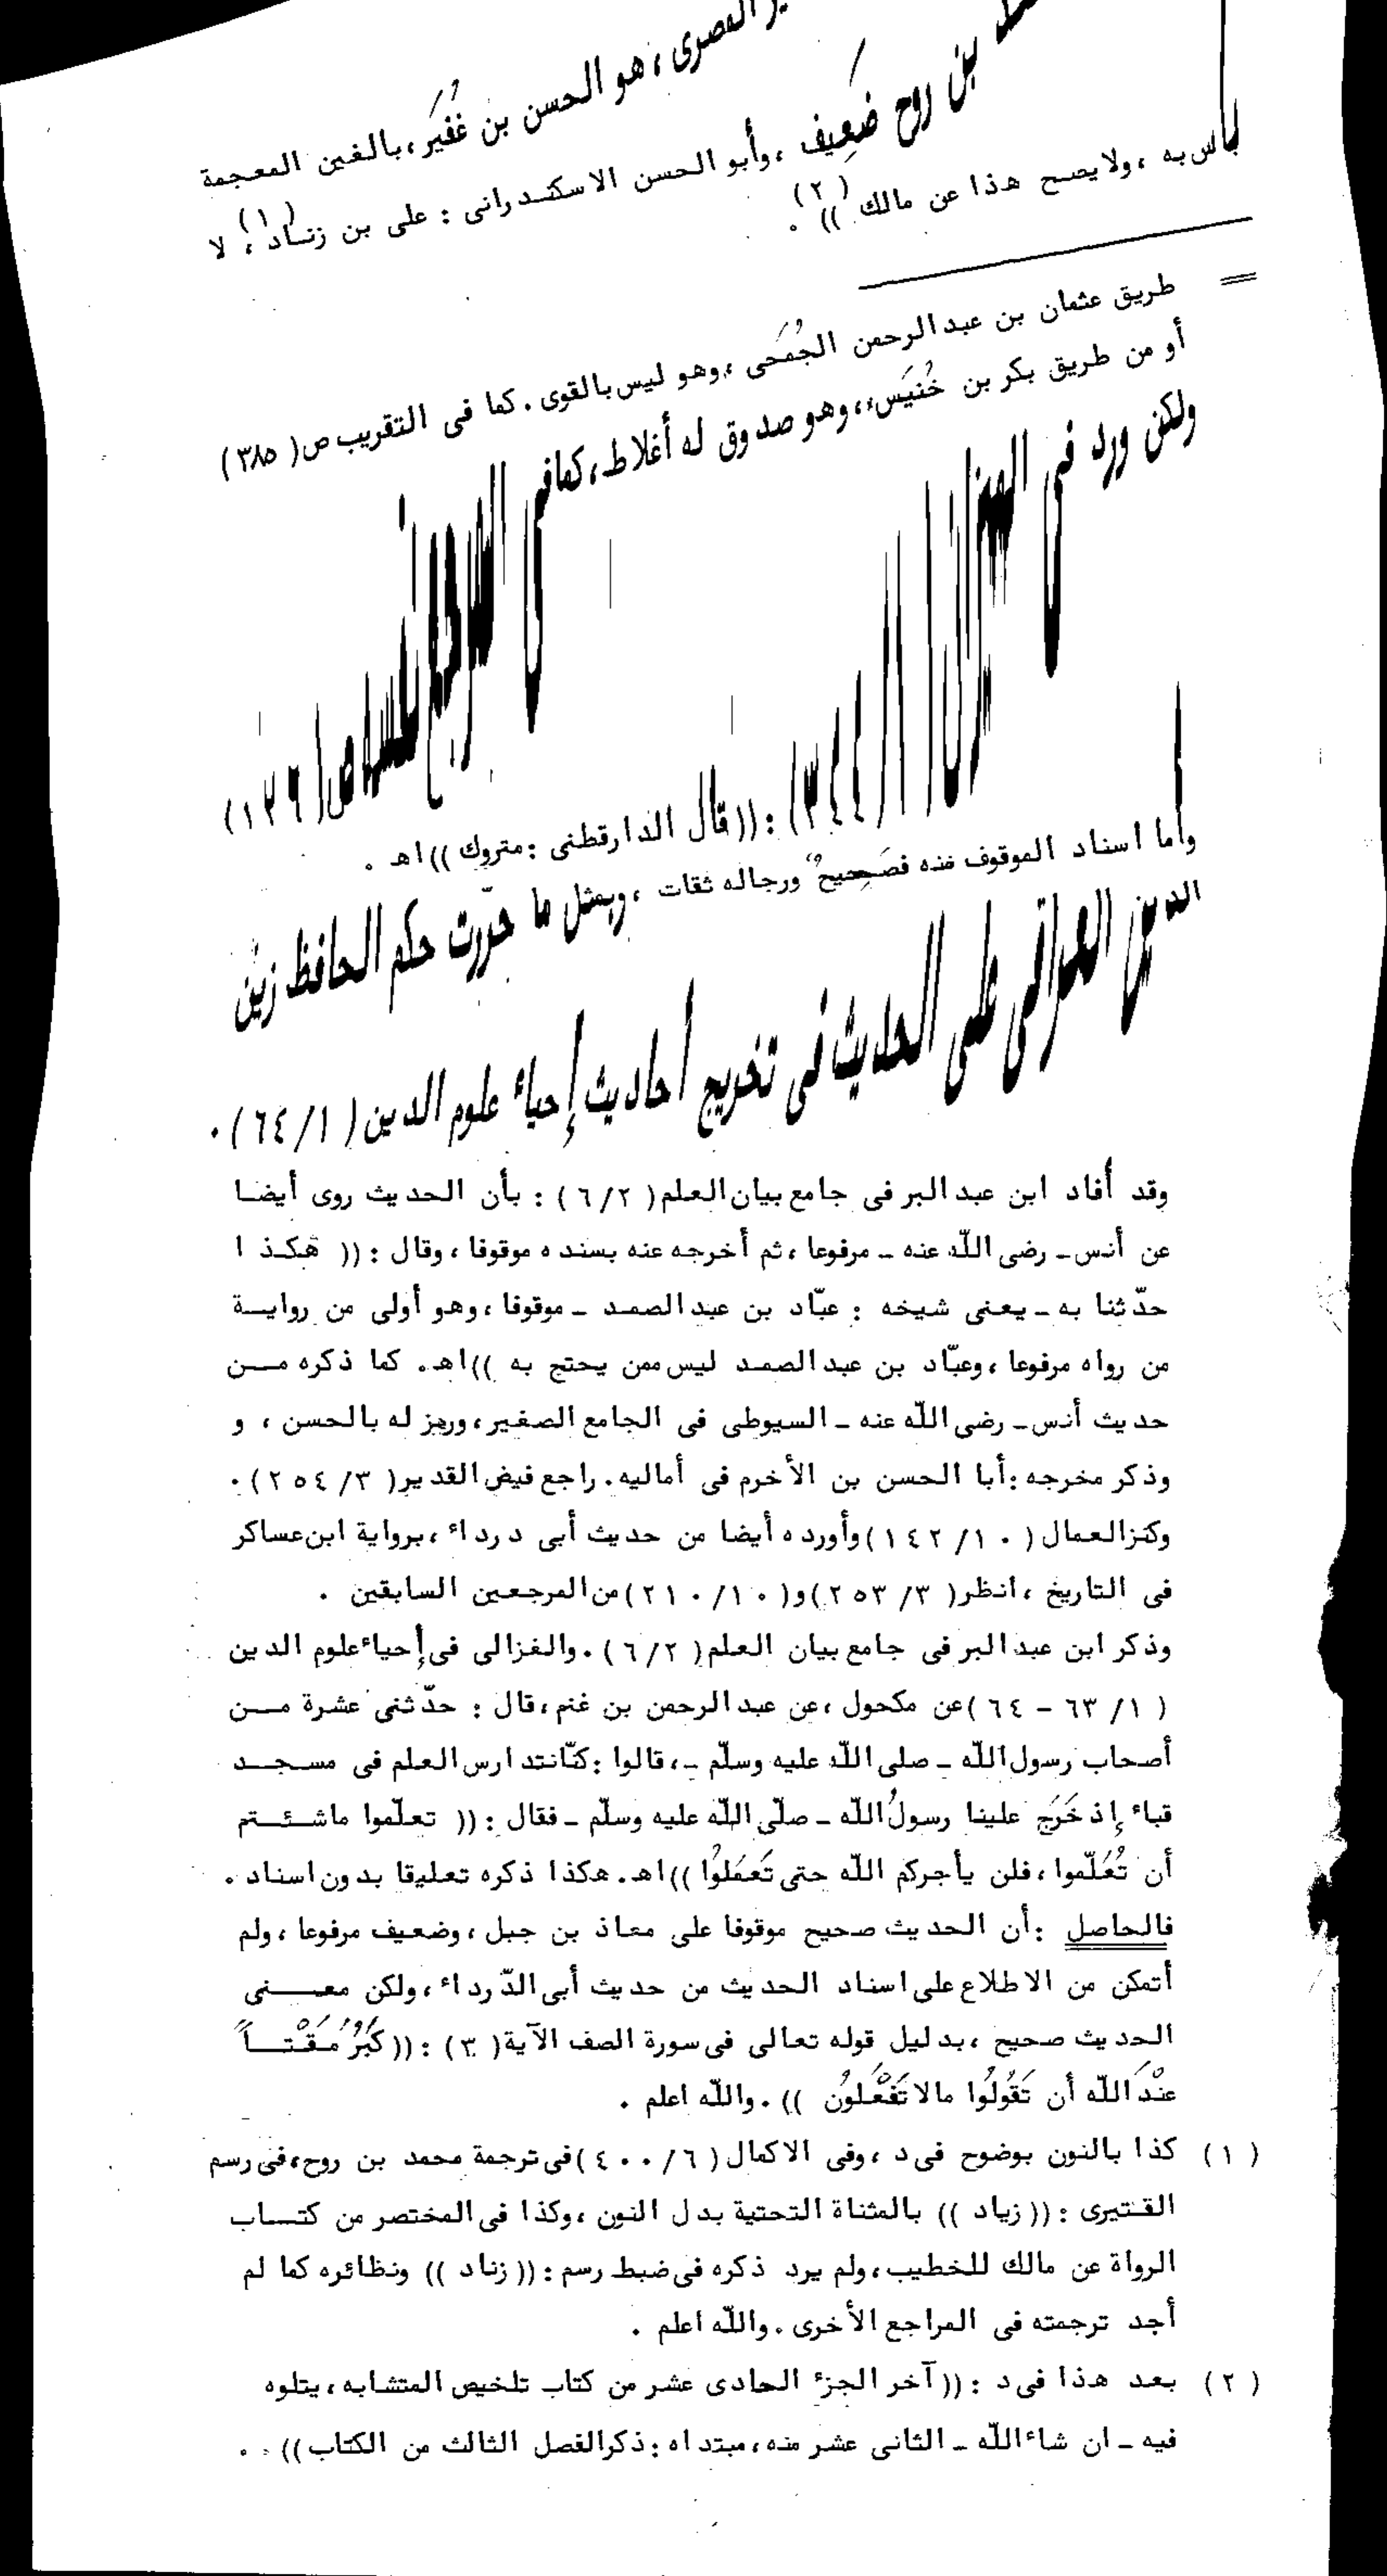 المصرى ، هو الحسن بن غُفَير ، بالغين المعجمة
بن روح ضَعِيف ، وأبو الحسن الاسكندرانى : على بن زناد (١) ، لا
بأس به ، ولا يصح هذا عن مالك )) (٢) .
= طريق عثمان بن عبد الرحمن الجُمَحى ، وهو ليس بالقوى . كما فى التقريب ص( ٣٨٥ )
أو من طريق بكر بن خُنَيَس ، وهو صدوق له أغلاط ، كما فى المرجع نفسه ص( ١٢٦ )
ولكن ورد فى الميزان ( ١/ ٣٤٤ ) : (( قال الدارقطنى : متروك )) اهـ .
وأما اسناد الموقوف منه فصَحِيحٌ ورجاله ثقات ، وبمثل ما حرّرت حكم الحافظ زين
الدين العراقى على الحديث فى تخريج أحاديث إحياء علوم الدين ( ١/ ٦٤ ) .
وقد أفاد ابن عبد البر فى جامع بيان العلم ( ٢/ ٦ ) : بأن الحديث روى أيضا
عن أنس ـ رضى اللّه عنه ـ مرفوعا ، ثم أخرجه عنه بسنده موقوفا ، وقال : (( هكذا
حدّثنا به ـ يعنى شيخه : عبّاد بن عبد الصمد ـ موقوفا ، وهو أولى من رواية
من رواه مرفوعا ، وعبّاد بن عبد الصمد ليس ممن يحتج به )) اهـ . كما ذكره من
حديث أنس ـ رضى اللّه عنه ـ السيوطى فى الجامع الصغير ، ورمز له بالحسن ، و
وذكر مخرجه : أبا الحسن بن الأخرم فى أماليه . راجع فيض القدير ( ٣/ ٢٥٤ ) .
وكنز العمال ( ١٠/ ١٤٢ ) وأورده أيضا من حديث أبى درداء ، برواية ابن عساكر
فى التاريخ ، انظر ( ٣/ ٢٥٣ ) و ( ١٠/ ٢١٠ ) من المرجعين السابقين .
وذكر ابن عبد البر فى جامع بيان العلم ( ٢/ ٦ ) . والغزالى فى إحياء علوم الدين
( ١/ ٦٣ – ٦٤ ) عن مكحول ، عن عبد الرحمن بن غنم ، قال : حدّثنى عشرة من
أصحاب رسول اللّه ـ صلى اللّه عليه وسلّم ـ ، قالوا : كنّا نتدارس العلم فى مسجد
قباء إذ خَرَج علينا رسولُ اللّه ـ صلّى اللّه عليه وسلّم ـ فقال : (( تعلّموا ما شئتم
أن تُعُلّموا ، فلن يأجركم اللّه حتى تَعمَلوُا )) اهـ . هكذا ذكره تعليقا بدون اسناد .
فالحاصل : أن الحديث صحيح موقوفا على معاذ بن جبل ، وضعيف مرفوعا ، ولم
أتمكن من الاطلاع على اسناد الحديث من حديث أبى الدّرداء ، ولكن معنى
الحديث صحيح ، بدليل قوله تعالى فى سورة الصف الآية ( ٣ ) : (( كَبُرُ مَقْتاً
عنْدَ اللّه أن تَقُولُوا ما لا تَفْعَلوُن )) . واللّه اعلم .
( ١ ) كذا بالنون بوضوح فى د ، وفى الاكمال ( ٦/ ٤٠٠ ) فى ترجمة محمد بن روح ، فى رسم
القتيرى : (( زياد )) بالمثناة التحتية بدل النون ، وكذا فى المختصر من كتاب
الرواة عن مالك للخطيب ، ولم يرد ذكره فى ضبط رسم : (( زناد )) ونظائره كما لم
أجد ترجمته فى المراجع الأخرى . واللّه اعلم .
( ٢ ) بعد هذا فى د : (( آخر الجزء الحادى عشر من كتاب تلخيص المتشابه ، يتلوه
فيه ـ ان شاء اللّه ـ الثانى عشر منه ، مبتداه : ذكر الفصل الثالث من الكتاب )) .